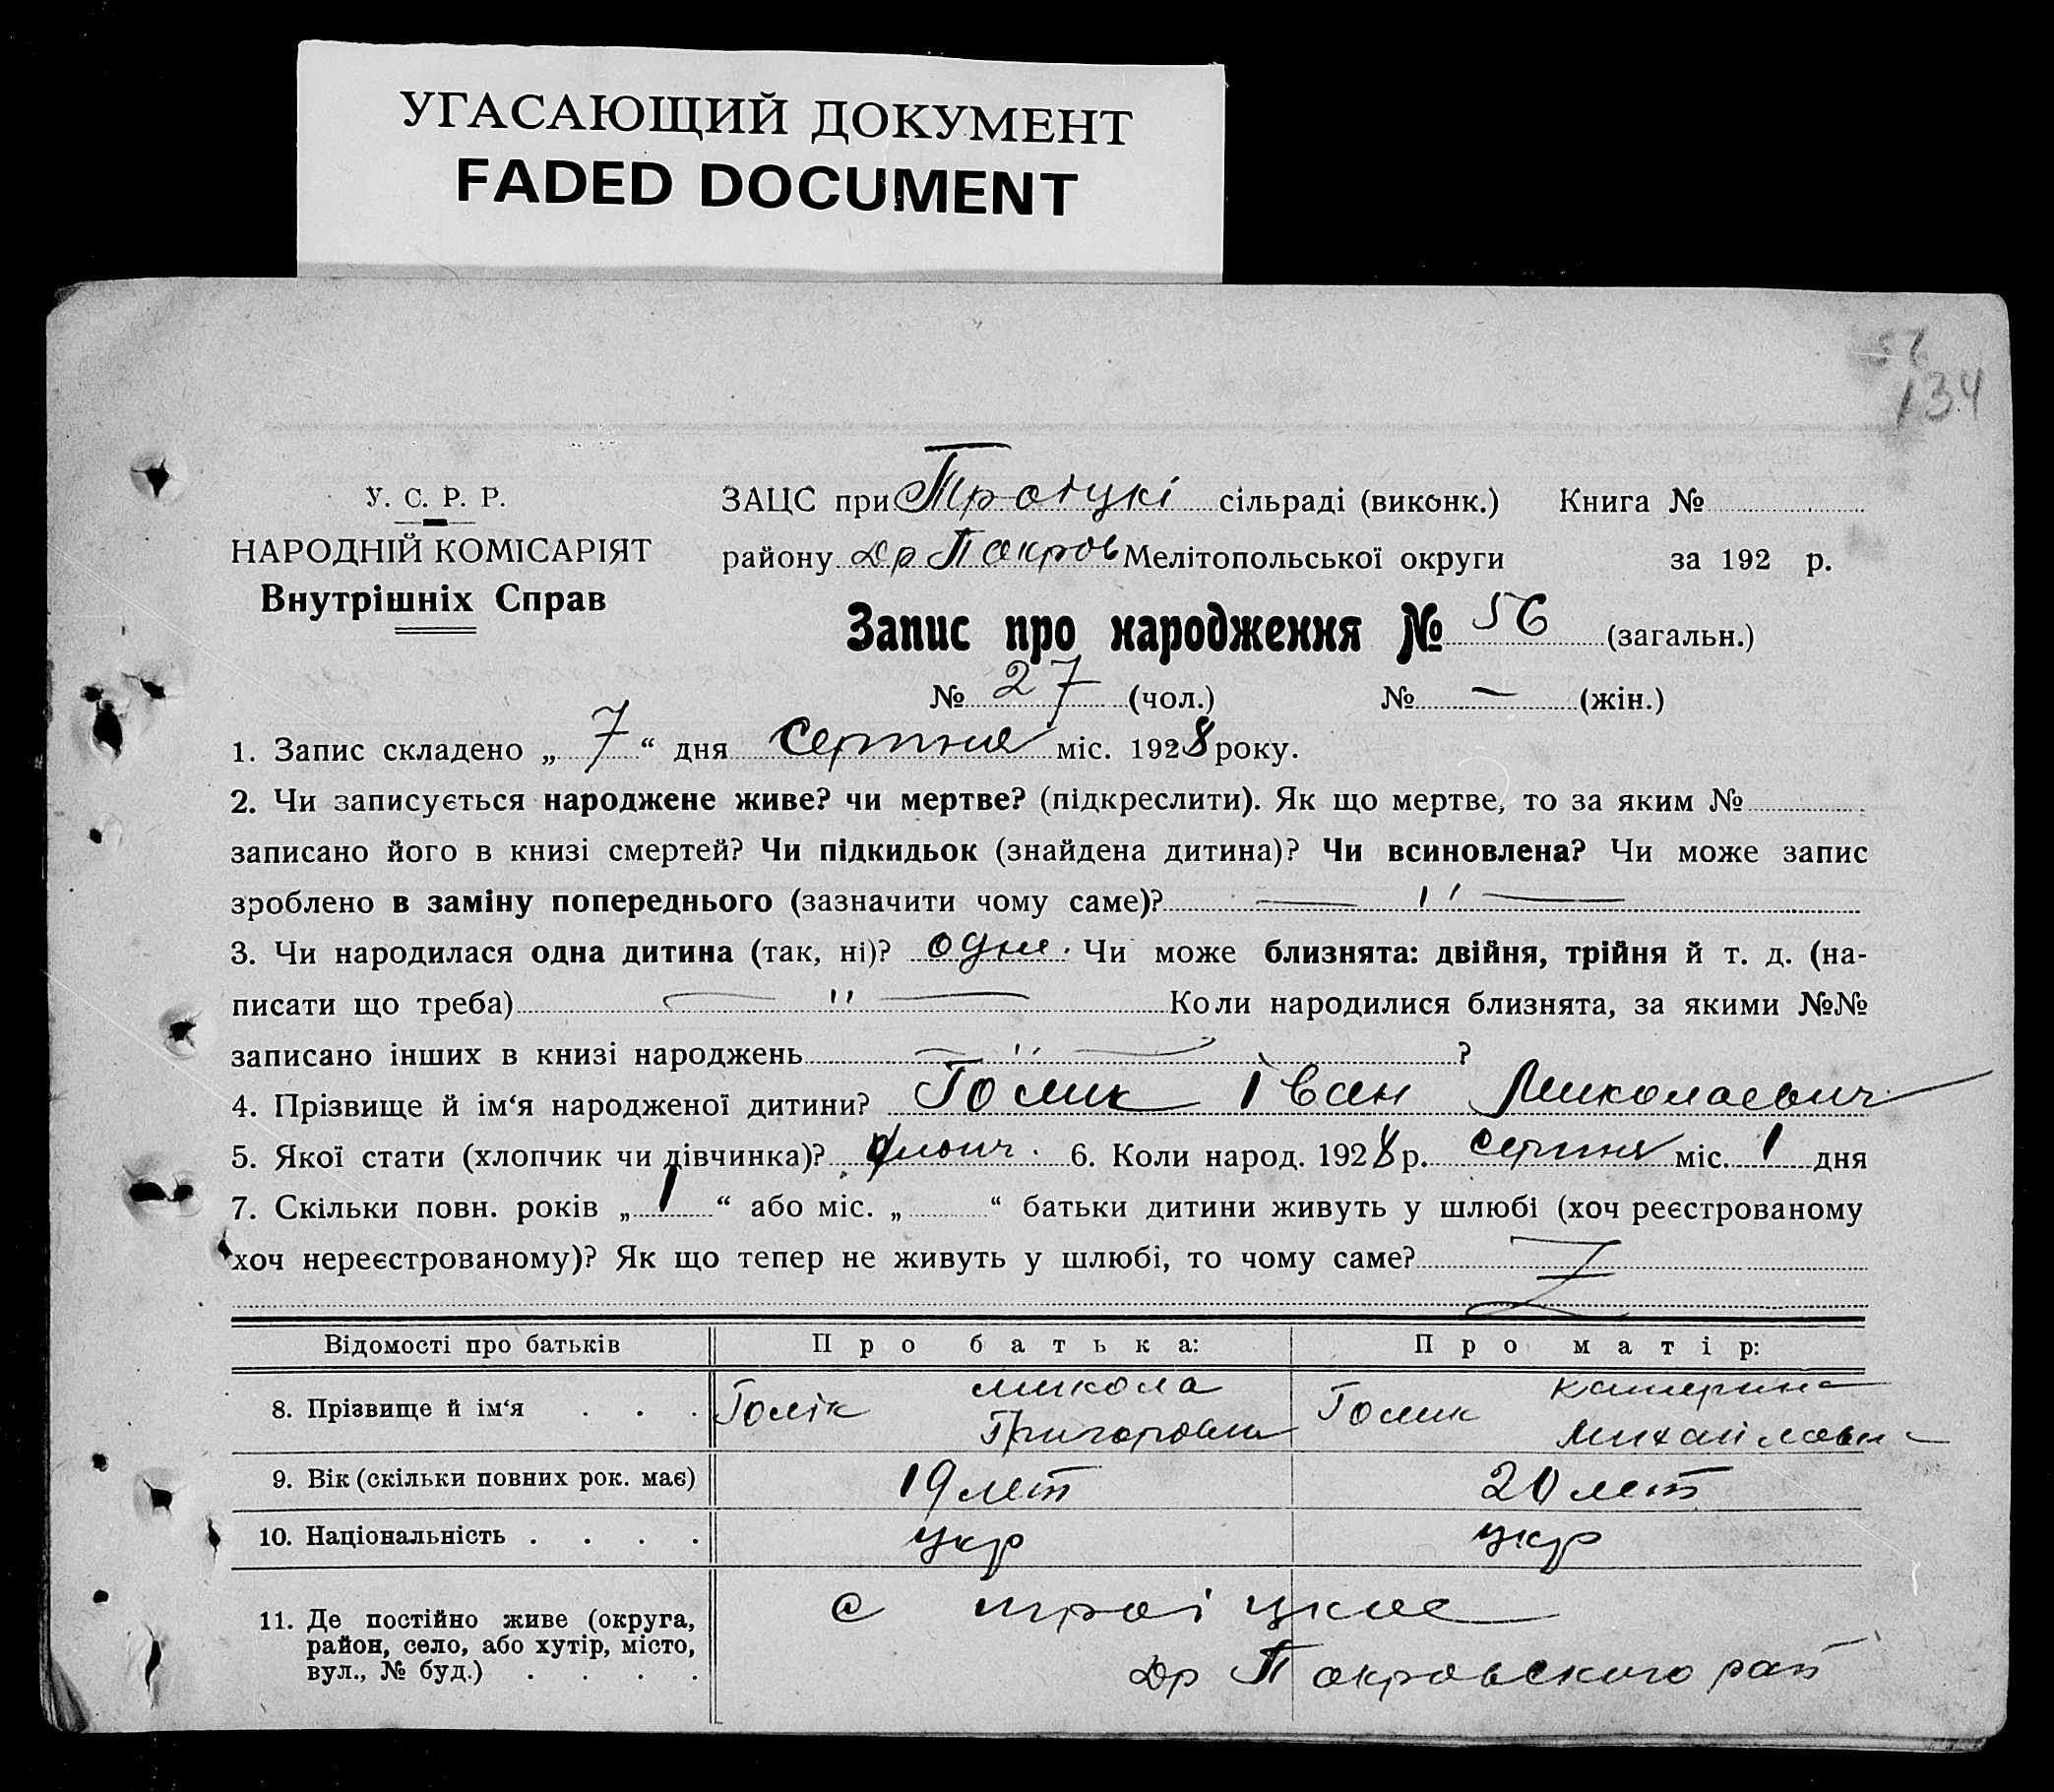 УГАСАЮЩИЙ ДОКУМЕНТ
FADED DOCUMENT
56
134
У. С. Р. Р.
НАРОДНІЙ КОМІСАРІЯТ
Внутрішніх Справ
ЗАЦС при Троіцкі сільраді (виконк.) Книга №
району Др Покров Мелітопольської округи за 192 р.
Запис про народження № 56 (загальн.)
№ 27 (чол.) № — (жін.)
1. Запис складено „ 7 “ дня серпня міс. 1928 року.
2. Чи записується народжене живе? чи мертве? (підкреслити). Як що мертве, то за яким №
записано його в книзі смертей? Чи підкидьок (знайдена дитина)? Чи всиновлена? Чи може запис
зроблено в заміну попереднього (зазначити чому саме)? — '' —
3. Чи народилася одна дитина (так, ні)? одна. Чи може близнята: двійня, трійня й т. д. (на-
писати що треба) — '' — Коли народилися близнята, за якими №№
записано інших в книзі народжень — '' — ?
4. Прізвище й ім‘я народженої дитини? Голик Іван Миколаевич
5. Якої стати (хлопчик чи дівчинка)? хлопч. 6. Коли народ. 1928 р. серпня міс. 1 дня
7. Скільки повн. років „ 1 “ або міс. „ “ батьки дитини живуть у шлюбі (хоч реєстрованому
хоч нереєстрованому)? Як що тепер не живуть у шлюбі, то чому саме?
Відомості про батьків Про батька: Про матір:
8. Прізвище й ім‘я . . . Голік Микола Григорович Голик Катерина Михайловна
9. Вік (скільки повних рок. має) 19 лет 20 лет
10. Національність . . . . укр укр
11. Де постійно живе (округа, с троіцкое
район, село, або хутір, місто, Др Покровского рай
вул., № буд.) . . . .